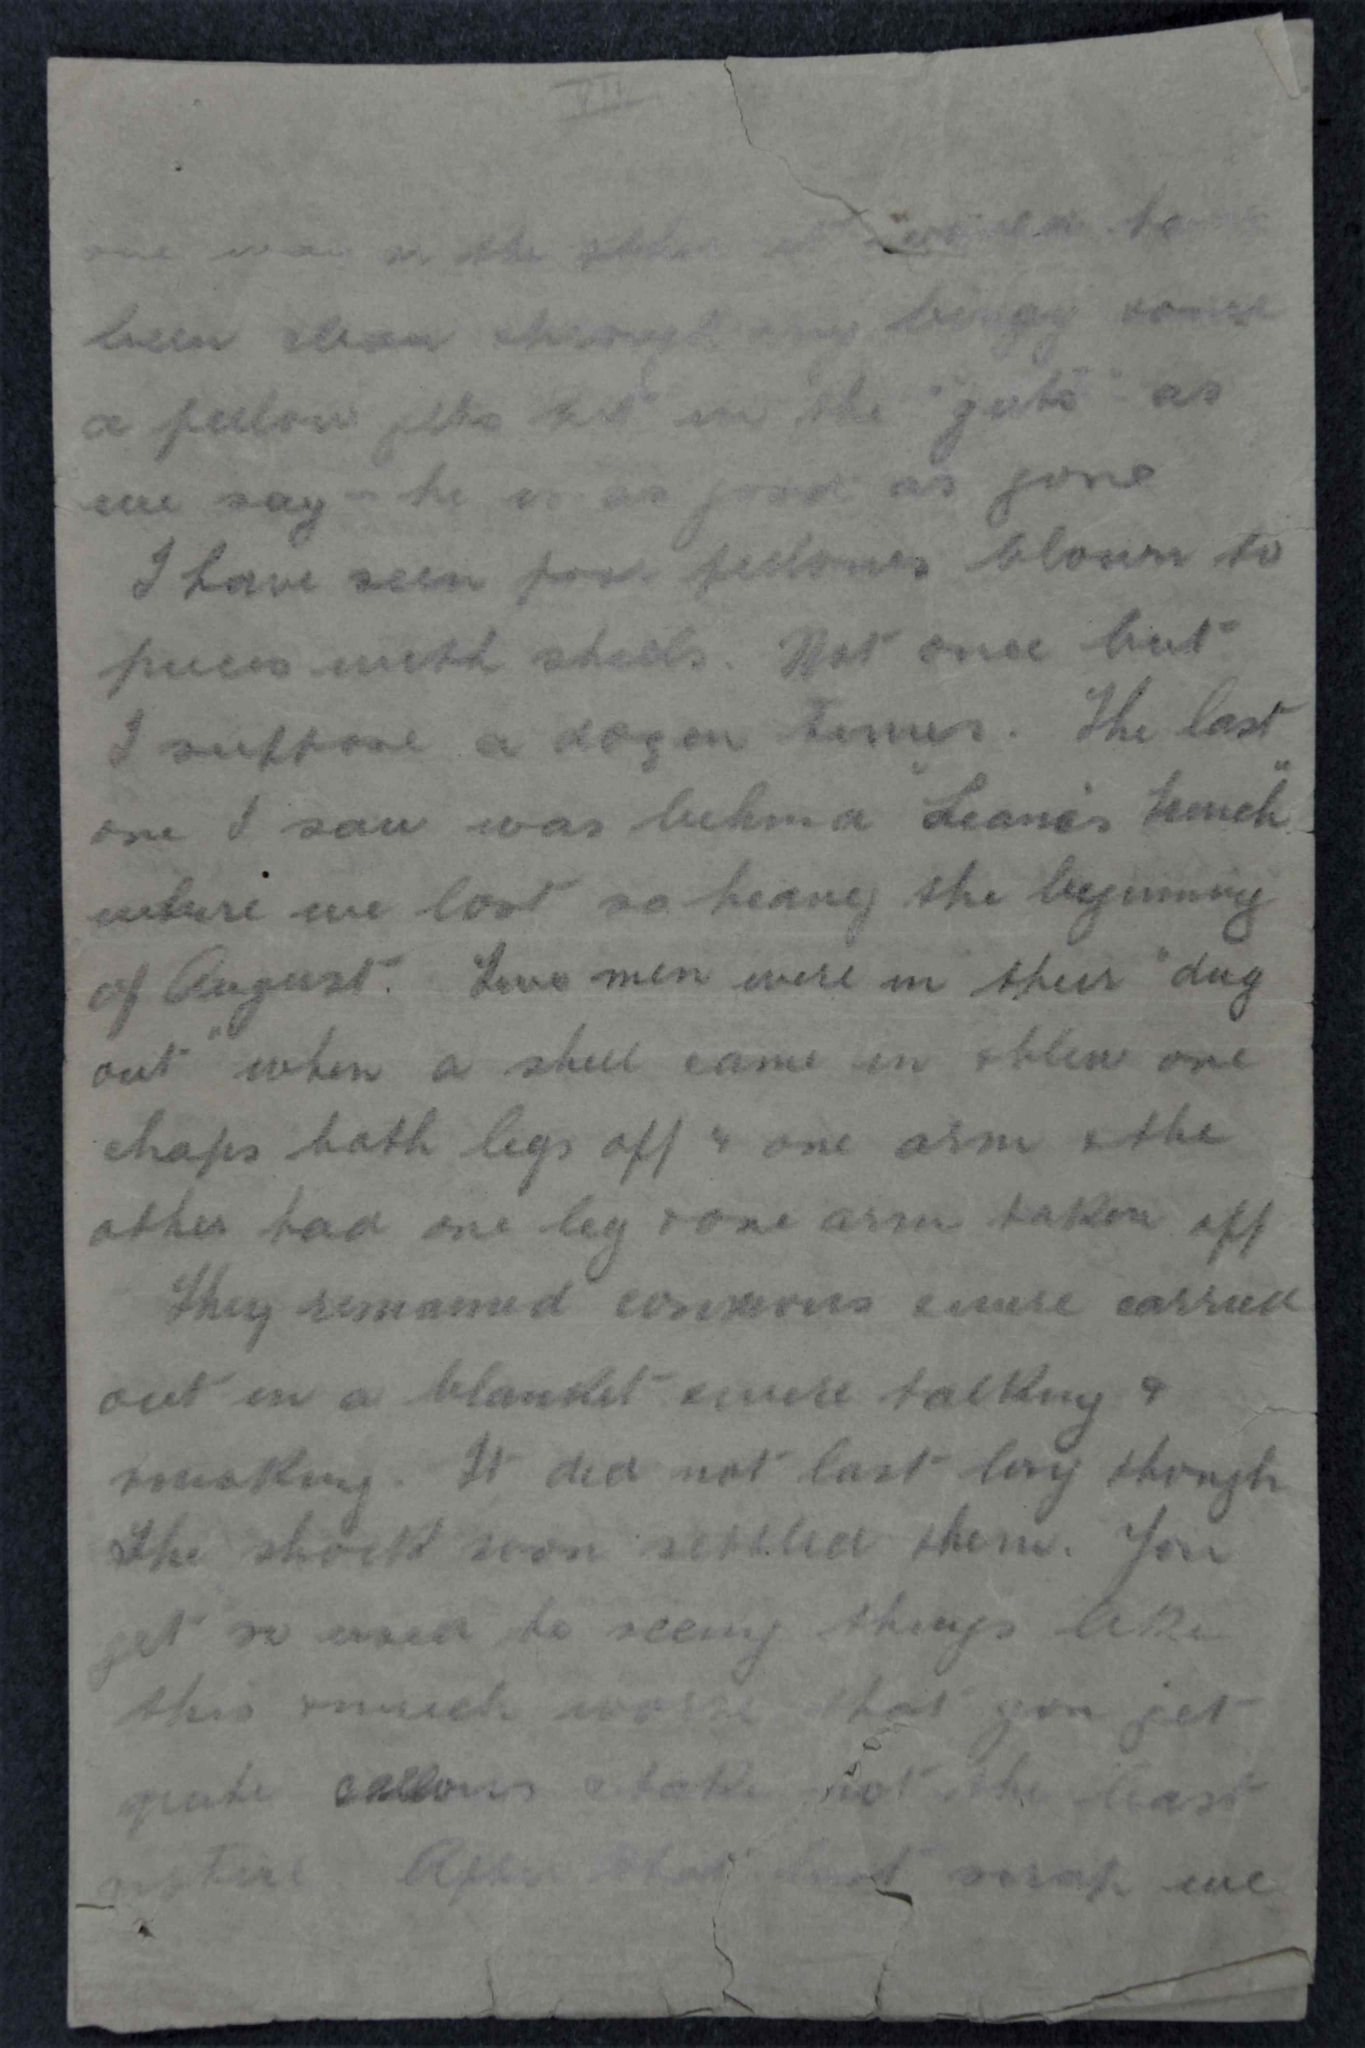 VII
one way or the other it would have
been clean through my bingy & once
a fellow gets hit in the "guts" as
we say - he is as good as gone
I have seen poor fellows blown to
pieces with shells. Not once but
I suppose a dozen times. The last
one I saw was behind "Leane's Trench"
where we lost so heavy the beginning
of August. Two men were in their "dug
out" when a shell came in & blew one
chaps both legs off & one arm & the
other had one leg & one arm taken off
They remained conscious & were carried
out in a blanket & were talking &
smoking. It did not last long though
The shock soon settled them. You
get so used to seeing things like
this & much worse that you get
quite callous & take not the least
notice. After that last scrap we